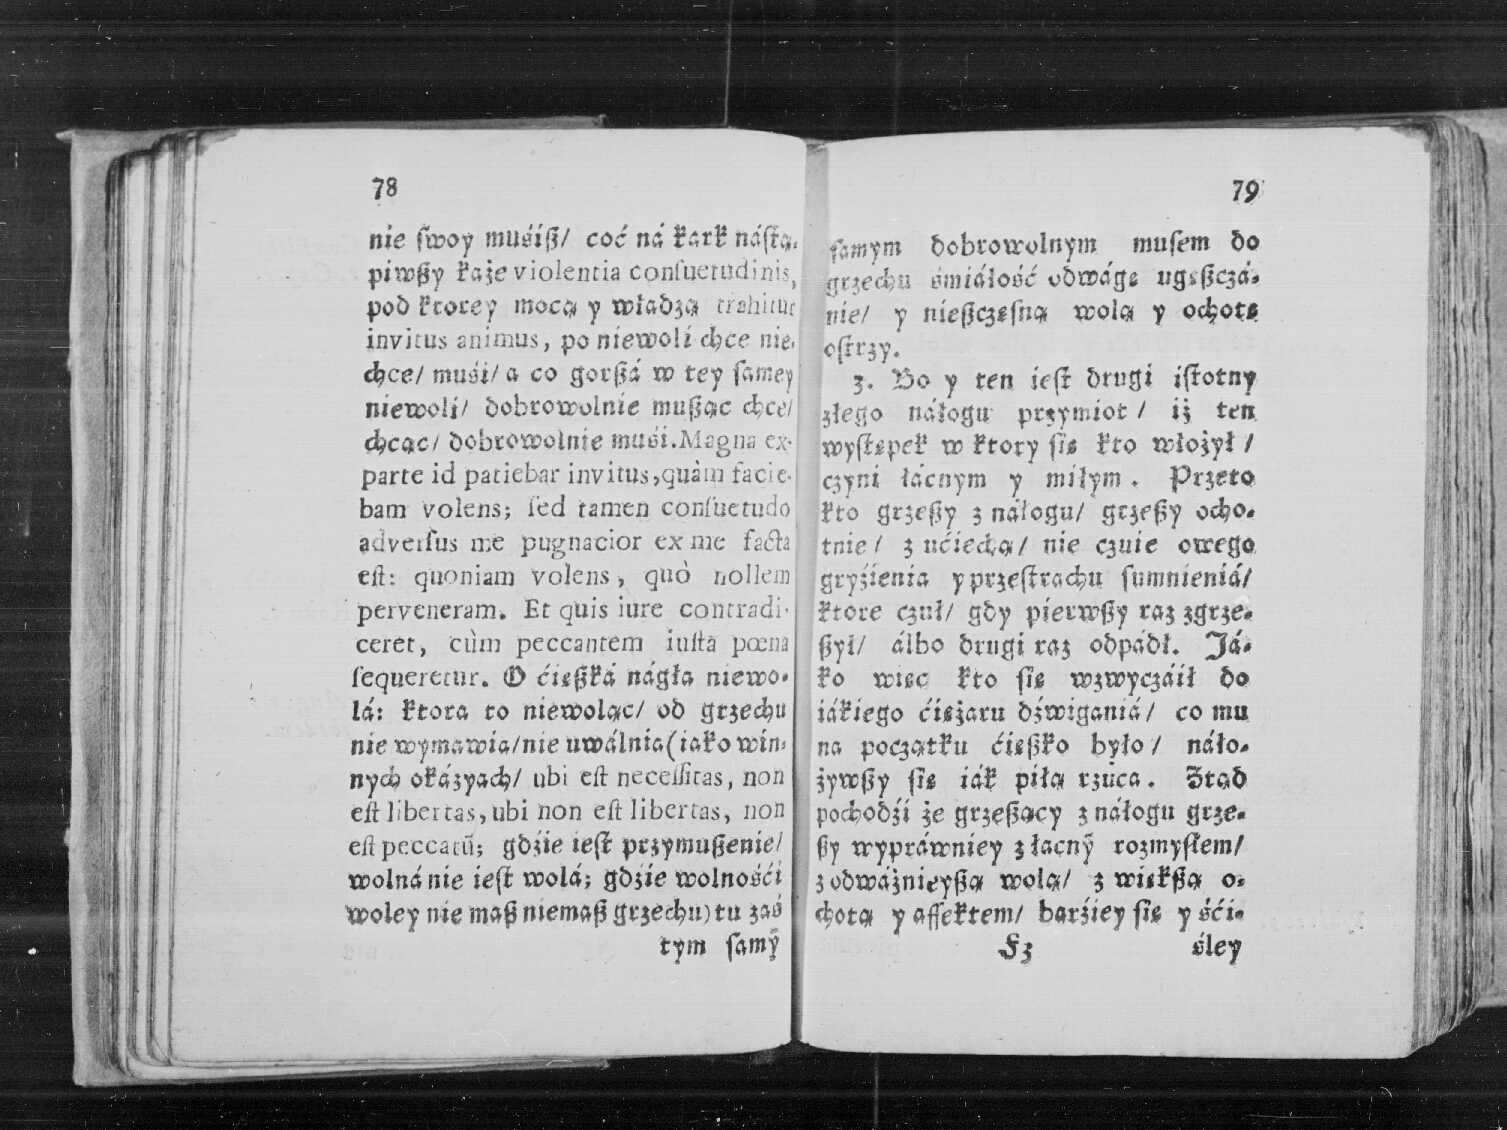 78
nie ſwoy muśiß/ coć ná kark náſtą-
piwßy każe violentia conſuetudinis,
pod ktorey mocą y władzą trahitur
invitus animus, po niewoli chce nie-
chce/ muśi/ a co gorßá w tey ſamey
niewoli/ dobrowolnie mußąc chce/
chcąc/ dobrowolnie muśi. Magna ex-
parte id patiebar invitus, quàm facie-
bam volens; ſed tamen conſuetudo
adverſus me pugnacior ex me facta
eſt: quoniam volens, quò nollem
perveneram. Et quis iure contradi-
ceret, cùm peccantem iuſta pœna
ſequeretur. O ćięßká nágła niewo-
lá: ktora to niewoląc/ od grzechu
nie wymawia/ nie uwálnia (iako win-
nych okázyach/ ubi eſt neceſſitas, non
eſt libertas, ubi non eſt libertas, non
eſt peccatũ; gdźie ieſt przymußenie/
wolná nie ieſt wolá; gdźie wolnośći
woley nie maß niemaß grzechu) tu zaś
tym ſamỹ
79
ſamym dobrowolnym muſem do
grzechu śmiáłość odwágę ugęßczá-
nie/ y nießczęſną wolą y ochotę
oſtrzy.
3. Bo y ten ieſt drugi iſtotny
złego náłogu przymiot/ iż ten
wyſtępek w ktory ſię kto włożył/
czyni łácnym y miłym. Przeto
kto grzeßy z náłogu/ grzeßy ocho-
tnie/ z ućiechą/ nie czuie owego
gryźienia y przeſtrachu ſumnieniá/
ktore czuł/ gdy pierwßy raz zgrze-
ßył/ álbo drugi raz odpádł. Já-
ko więc kto ſię wzwyczáił do
iákiego ćiężaru dźwiganiá/ co mu
na początku ćięßko było/ náło-
żywßy ſię iák piłą rzuca. Ztąd
pochodźi że grzeßący z náłogu grze-
ßy wypráwniey z łacnỹ rozmyſłem/
z odważnieyßą wolą/ z więkßą o-
chotą y affektem/ barźiey ſię y śći-
F3 śley